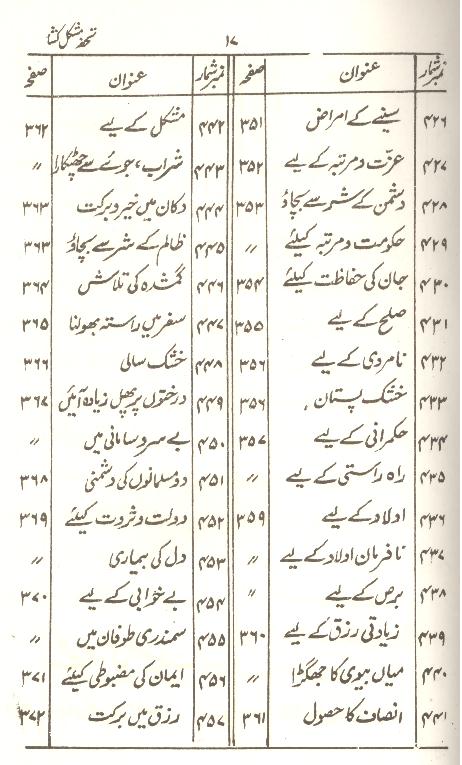 تحفہ مشکل کشا ۱۷
نمبر شمار عنوان صفحہ
۴۲۶ سینے کے امراض ۳۵۱
۴۲۷ عزّت و مرتبہ کے لیے ۳۵۲
۴۲۸ دشمن کے شر سے بچاؤ ۳۵۳
۴۲۹ حکومت و مرتبہ کیلئے 〃
۴۳۰ جان کی حفاظت کیلئے ۳۵۴
۴۳۱ صلح کے لیے ۳۵۵
۴۳۲ نامردی کے لیے ۳۵۶
۴۳۳ خشک پستان ۳۵۶
۴۳۴ حکمرانی کے لیے ۳۵۷
۴۳۵ راہ راستی کے لیے 〃
۴۳۶ اولاد کے لیے ۳۵۹
۴۳۷ نافرمان اولاد کے لیے 〃
۴۳۸ برص کے لیے 〃
۴۳۹ زیادتی رزق کے لیے ۳۶۰
۴۴۰ میاں بیوی کا جھگڑا 〃
۴۴۱ انصاف کا حصول ۳۶۱
نمبر شمار عنوان صفحہ
۴۴۲ مشکل کے لیے ۳۶۲
۴۴۳ شراب، جوئے سے چھٹکارا 〃
۴۴۴ دکان میں خیر و برکت ۳۶۳
۴۴۵ ظالم کے شر سے بچاؤ ۳۶۳
۴۴۶ گمشدہ کی تلاش ۳۶۴
۴۴۷ سفر میں راستہ بھولنا ۳۶۵
۴۴۸ خشک سالی ۳۶۶
۴۴۹ درختوں پر پھل زیادہ آئیں ۳۶۷
۴۵۰ بے سرو سامانی میں 〃
۴۵۱ دو مسلمانوں کی دشمنی ۳۶۸
۴۵۲ دولت و ثروت کیلئے ۳۶۹
۴۵۳ دل کی بیماری 〃
۴۵۴ بے خوابی کے لیے ۳۷۰
۴۵۵ سمندری طوفان میں 〃
۴۵۶ ایمان کی مضبوطی کیلئے ۳۷۱
۴۵۷ رزق میں برکت ۳۷۲